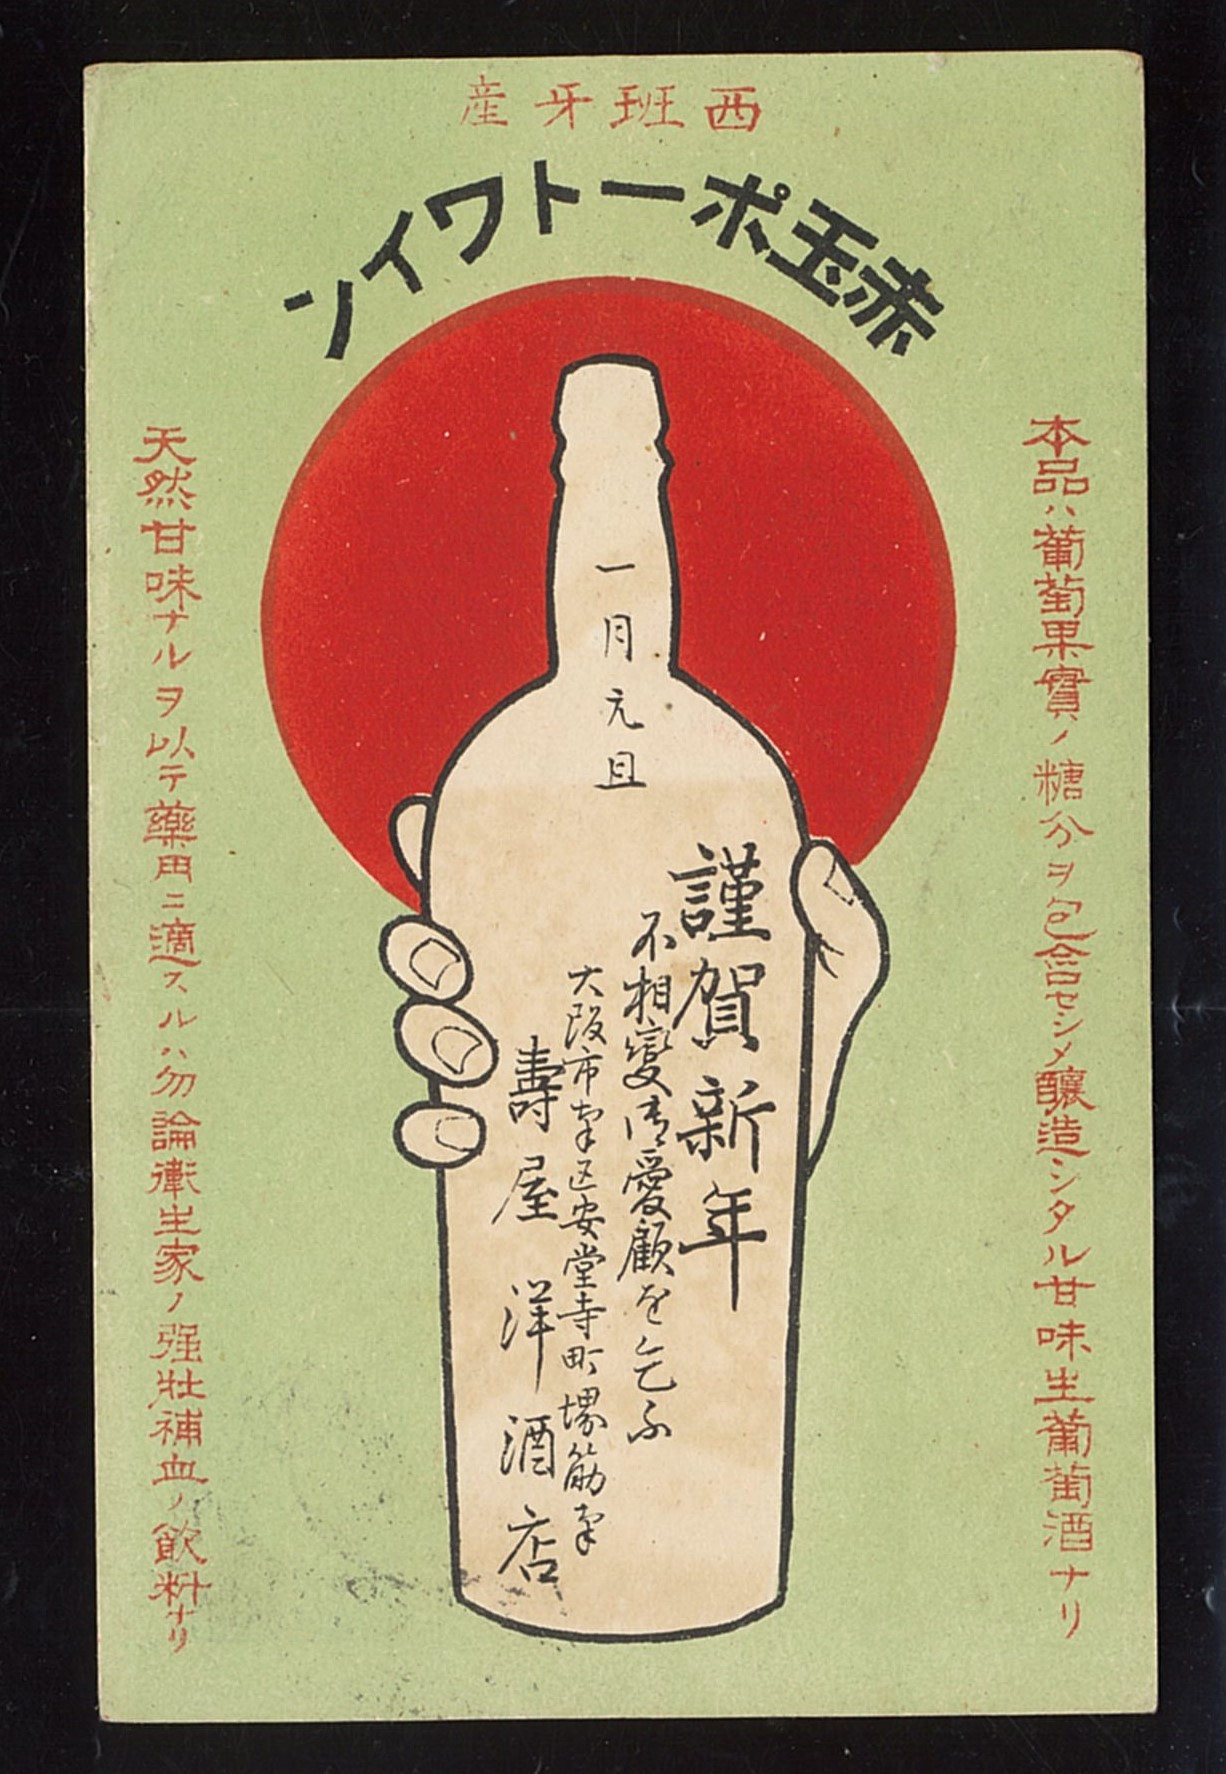 西班牙産
赤玉ポートワイン
本品ハ葡萄果實ノ糖分ヲ包含セシメ釀造シタル甘味生葡萄酒ナリ
一月元旦
謹賀新年
不相變御愛顧を乞ふ
大阪市南区安堂寺町堺筋南
壽屋洋酒店
天然甘味ナルヲ以テ藥用ニ適スルハ勿論衛生家ノ强壯補血ノ飲料ナリ